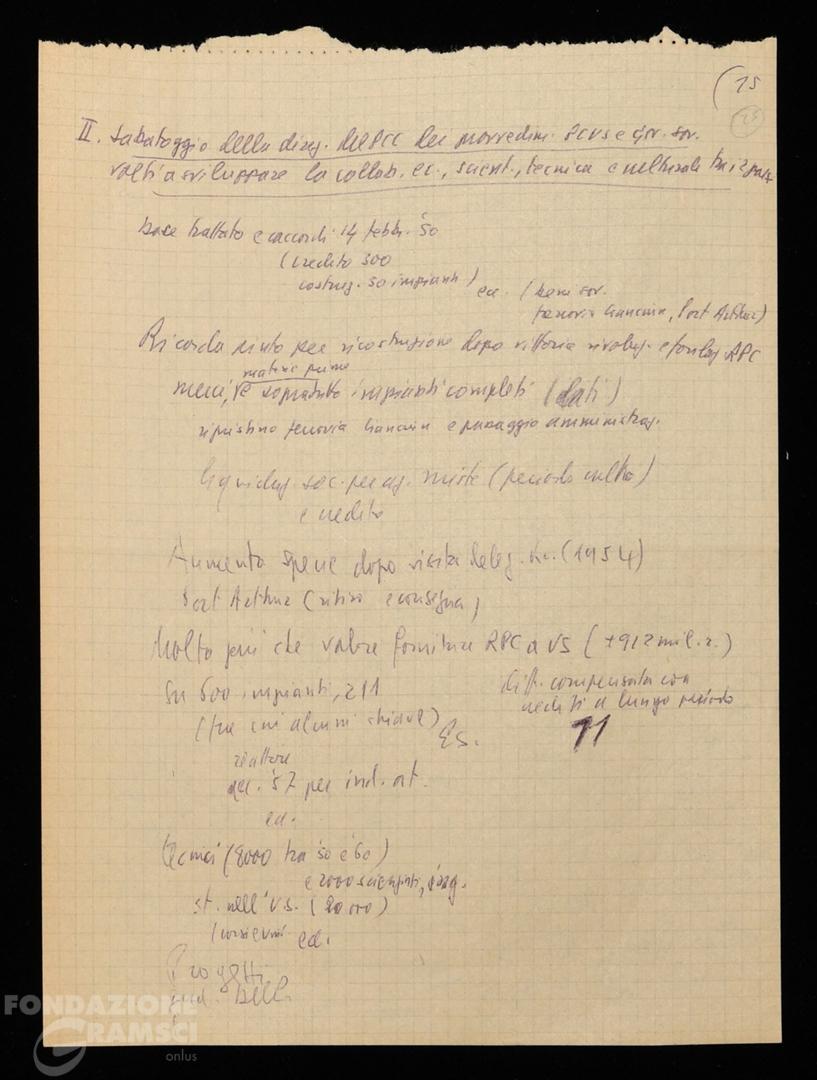 (15
25
II. Sabotaggio della direz. del PCC dei provvedim. PCUS e gov. sov.
volti a sviluppare la collab. ec., scient., tecnica e culturale tra i 2 paesi
base trattato e accordi 14 febbr. '50
(credito 300
costruz. 50 impianti)
ec. (beni sov.
ferrovia Ciancun, Port Arthur)
Ricorda aiuto per ricostruzione dopo vittoria rivoluz. e fondaz. RPC
materie prime
merci, e sopratutto impianti completi (dati)
ripristino ferrovia Ciancun e passaggio amministraz.
liquidaz. soc. per az. miste (periodo culto)
e credito
Aumento specie dopo visita deleg. (1954)
Port Arthur (ritiro e consegna)
Molto più che valore forniture RPC a US (+912 mil. r.)
diff. compensata con
crediti a lungo periodo
Su 500 impianti, 211
(tra cui alcuni chiave)
Es. 11
reattore
acc. '57 per ind. at.
ec.
tecnici (8000 tra '50 e '60)
e 2000 scienziati,
st. nell'US. (20 000)
ec.
Progetti
FONDAZIONE
GRAMSCI
onlus